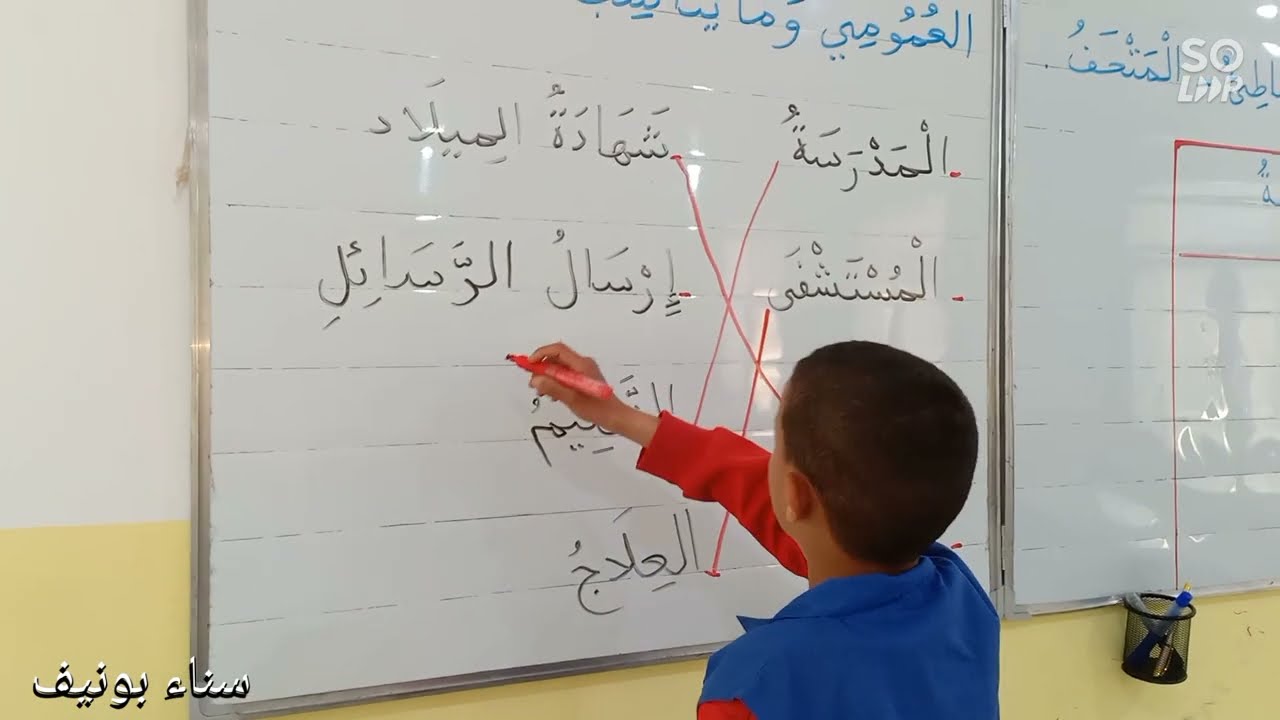 العُمُومِي وَمَا
الْمَدْرَسَةُ شَهَادَةُ المِيلَاد
الْمُسْتَشْفَى إِرْسَالُ الرَّسَائِلِ
العِلَاجُ
الْمَتْحَفُ
SO
سناء بونيف